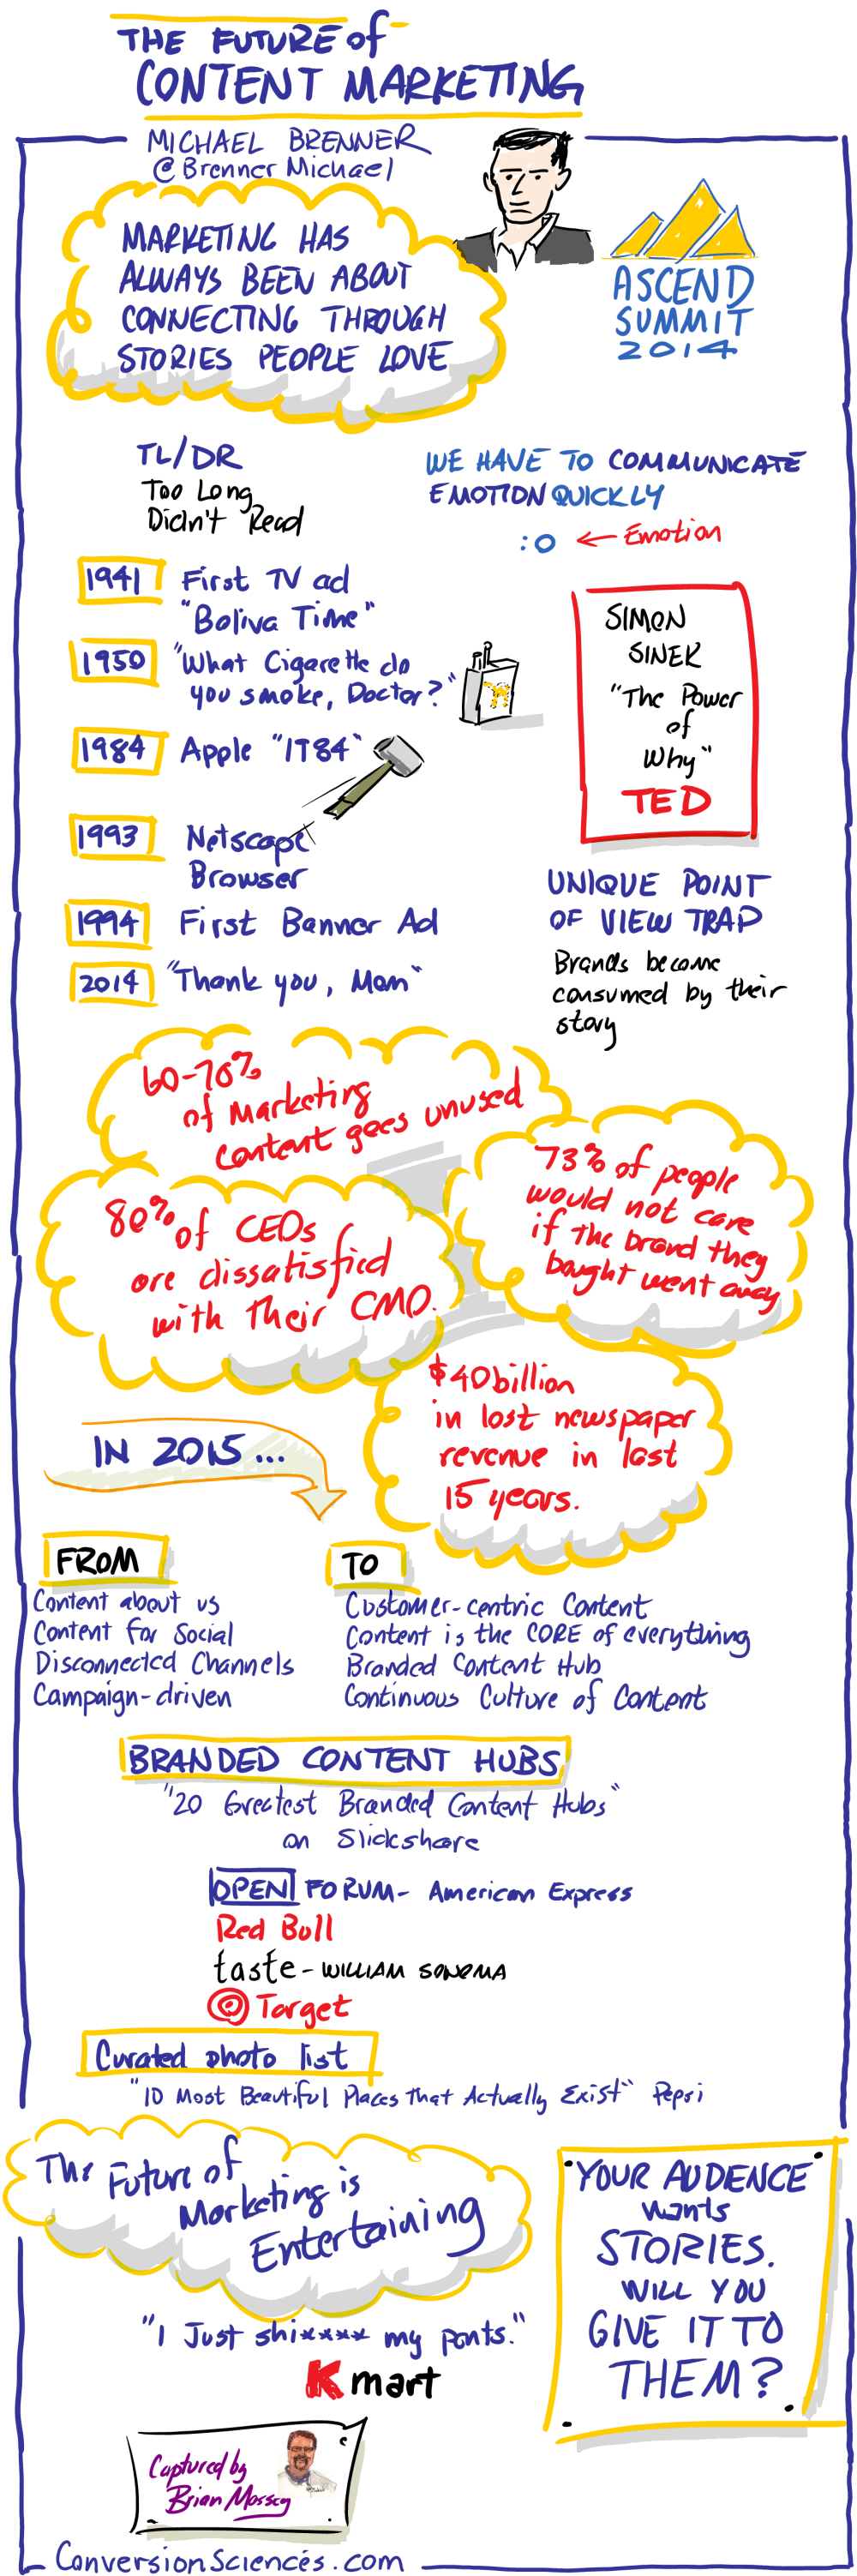 THE FUTURE of
CONTENT MARKETING
MICHAEL BRENNER
@BrennerMichael
MARKETING HAS
ALWAYS BEEN ABOUT
CONNECTING THROUGH
STORIES PEOPLE LOVE
ASCEND
SUMMIT
2014
TL/DR
Too Long
Didn't Read
WE HAVE TO COMMUNICATE
EMOTION QUICKLY
:O ← Emotion
1941 First TV ad
"Boliva Time"
1950 "What Cigarette do
you smoke, Doctor?"
1984 Apple "1984"
1993 Netscape
Browser
1994 First Banner Ad
2014 "Thank you, Mom"
SIMON
SINEK
"The Power
of
Why"
TED
UNIQUE POINT
OF VIEW TRAP
Brands become
consumed by their
story
60-70%
of Marketing
content goes unused
73% of people
would not care
if the brand they
bought went away
80% of CEOs
are dissatisfied
with their CMO.
$40 billion
in lost newspaper
revenue in last
15 years.
IN 2015...
FROM
Content about us
Content for Social
Disconnected Channels
Campaign-driven
TO
Customer-centric Content
Content is the CORE of everything
Branded Content Hub
Continuous Culture of Content
BRANDED CONTENT HUBS
"20 Greatest Branded Content Hubs"
on Slideshare
OPEN FORUM - American Express
Red Bull
taste - WILLIAM SONOMA
Target
Curated photo list
"10 Most Beautiful Places That Actually Exist" Pepsi
The Future of
Marketing is
Entertaining
"I Just shi**** my pants."
Kmart
YOUR AUDIENCE
wants
STORIES.
WILL YOU
GIVE IT TO
THEM?
Captured by
Brian Massey
ConversionSciences.com